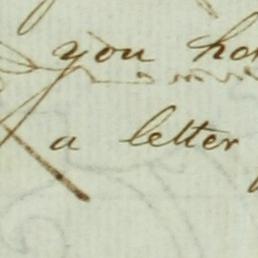 you
a letter